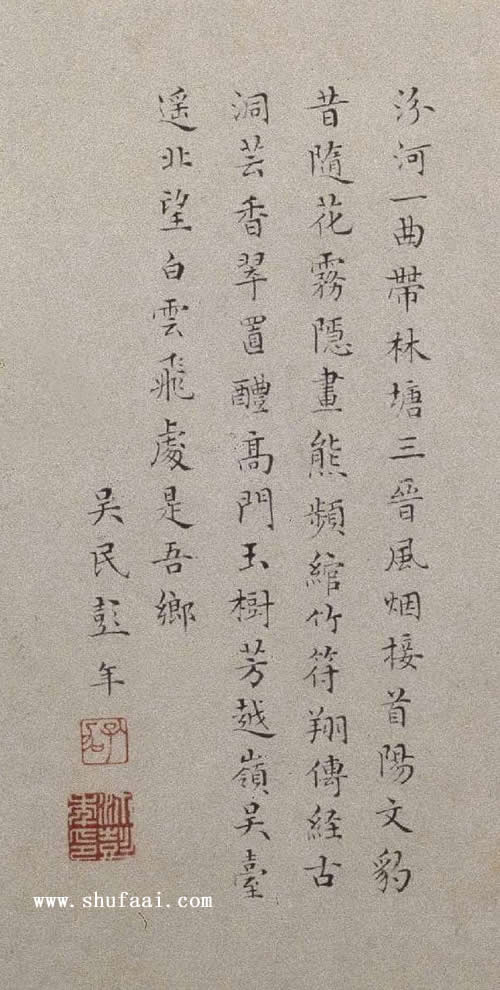 汾河一曲帶林塘三晉風烟接首陽文豹
昔隨花霧隱畫熊頻綰竹符翔傳経古
洞芸香翠置醴高門玉樹芳越嶺吳臺
遥北望白雲飛處是吾鄉
吳民彭年
www.shufaai.com